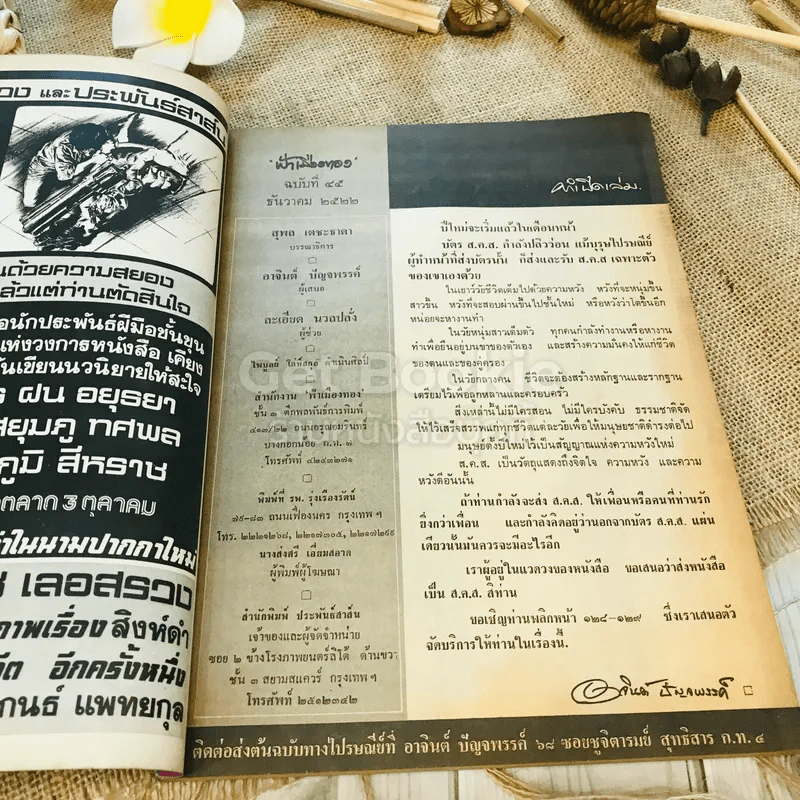 และประพันธ์สาส์น
ด้วยความสยอง
แล้วแต่ท่านตัดสินใจ
นักประพันธ์ฝีมือชั้นขุน
แห่งวงการหนังสือ เคียง
เขียนนวนิยายให้สะใจ
ฝน อยุธยา
สยุมภู ทศพล
ภูมิ สีหราช
ตลาด 3 ตุลาคม
ในนามปากกาใหม่
เลอสรวง
ภาพเรื่อง สิงห์ดำ
อีกครั้งหนึ่ง
แพทยกุล
"ฟ้าเมืองทอง"
ฉบับที่ ๔๕
ธันวาคม ๒๕๒๒
สุพล เตชะธาดา
บรรณาธิการ
อาจินต์ ปัญจพรรค์
ผู้เสนอ
ละเอียด นวลปลั่ง
ผู้ช่วย
ไพบูลย์ ดำเนินศิลป์
สำนักงาน "ฟ้าเมืองทอง"
ชั้น ๑ ตึกพลพันธ์การพิมพ์
๔๑๓/๒๒ ถนนอรุณอมรินทร์
บางกอกน้อย ก.ท. ๗
โทรศัพท์ ๔๒๔๓๒๗๑
พิมพ์ที่ รพ. รุ่งเรืองรัตน์
๗๙-๘๓ ถนนเฟื่องนคร กรุงเทพฯ
โทร. ๒๒๒๑๒๖๘, ๒๒๑๗๓๐๕, ๒๒๑๗๒๙๙
นางส่งศรี เอี่ยมสอาด
ผู้พิมพ์ผู้โฆษณา
สำนักพิมพ์ ประพันธ์สาส์น
เจ้าของและผู้จัดจำหน่าย
ซอย ๒ ข้างโรงภาพยนตร์ลิโด้ ด้านขวา
ชั้น ๓ สยามสแควร์ กรุงเทพฯ
โทรศัพท์ ๒๕๑๒๓๔๒
คำเปิดเล่ม.
ปีใหม่จะเริ่มแล้วในเดือนหน้า
บัตร ส.ค.ส. กำลังปลิวว่อน แม้บุรุษไปรษณีย์
ผู้ทำหน้าที่ส่งบัตรนั้น ก็ส่งและรับ ส.ค.ส เฉพาะตัว
ของเขาเองด้วย
ในเยาว์วัยชีวิตเต็มไปด้วยความหวัง หวังที่จะหนุ่มขึ้น
สาวขึ้น หวังที่จะสอบผ่านขึ้นไปชั้นใหม่ หรือหวังว่าโตขึ้นอีก
หน่อยจะหางานทำ
ในวัยหนุ่มสาวเต็มตัว ทุกคนกำลังทำงานหรือหางาน
ทำเพื่อยืนอยู่บนขาของตัวเอง และสร้างความมั่นคงให้แก่ชีวิต
ของตนและของคู่ครอง
ในวัยกลางคน ชีวิตจะต้องสร้างหลักฐานและรากฐาน
เตรียมไว้เพื่อลูกหลานและครอบครัว
สิ่งเหล่านี้ไม่มีใครสอน ไม่มีใครบังคับ ธรรมชาติจัด
ให้ไว้เสร็จสรรพแก่ทุกชีวิตแต่ละวัยเพื่อให้มนุษยชาติดำรงต่อไป
มนุษย์ตั้งปีใหม่ไว้เป็นสัญญาณแห่งความหวังใหม่
ส.ค.ส. เป็นวัตถุแสดงถึงจิตใจ ความหวัง และความ
หวังดีอันนั้น
ถ้าท่านกำลังจะส่ง ส.ค.ส. ให้เพื่อนหรือคนที่ท่านรัก
ยิ่งกว่าเพื่อน และกำลังคิดอยู่ว่านอกจากบัตร ส.ค.ส. แผ่น
เดียวนั้นมันควรจะมีอะไรอีก
เราผู้อยู่ในแวดวงของหนังสือ ขอเสนอว่าส่งหนังสือ
เป็น ส.ค.ส. สิท่าน
ขอเชิญท่านพลิกหน้า ๑๒๘-๑๒๙ ซึ่งเราเสนอตัว
จัดบริการให้ท่านในเรื่องนี้.
อาจินต์ ปัญจพรรค์
ติดต่อส่งต้นฉบับทางไปรษณีย์ที่ อาจินต์ ปัญจพรรค์ ๖๘ ซอยชูจิตารมย์ สุทธิสาร ก.ท. ๔